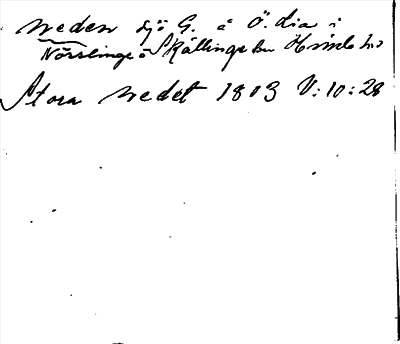 Neden sjö G. å Ö. Lia i
Nösslinge o Skällinge sn Himle hd
Stora Nedet 1803 V:10:28